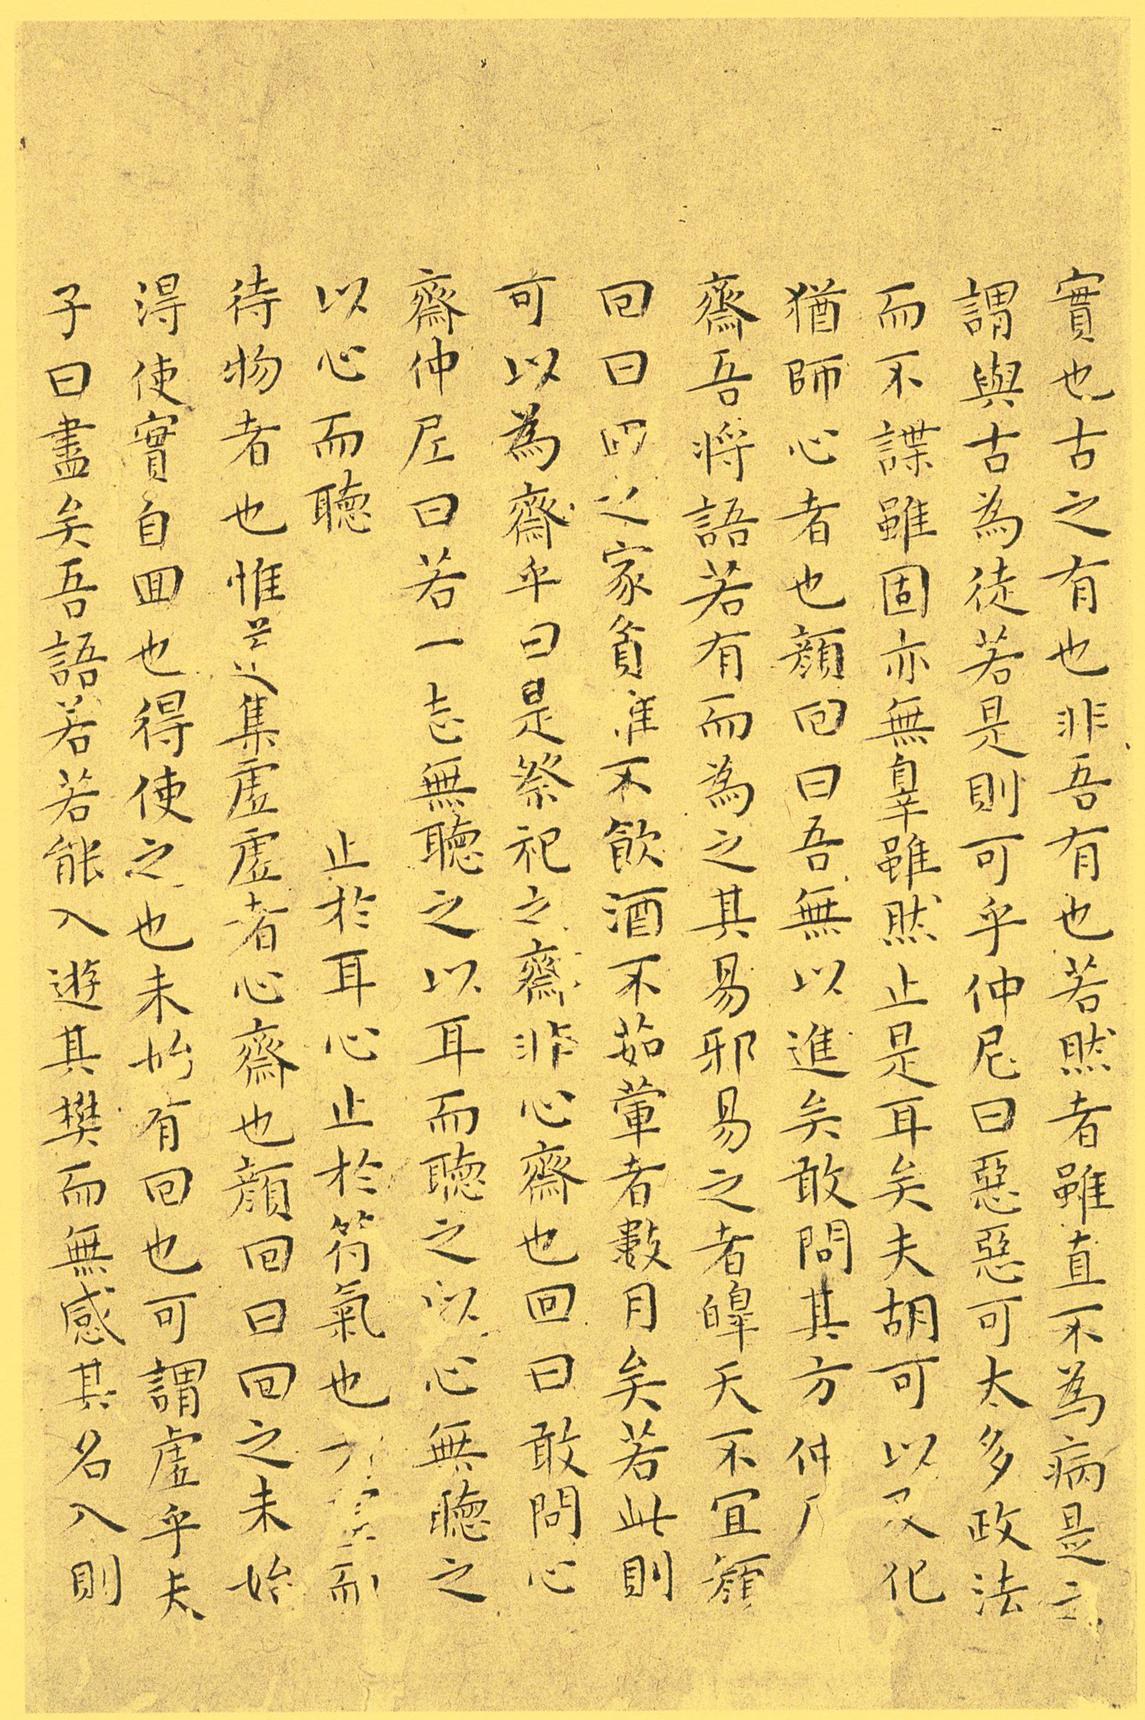 實也古之有也非吾有也若然者雖直不為病是之
謂與古為徒若是則可乎仲尼曰惡惡可太多政法
而不諜雖固亦無辠雖然止是耳矣夫胡可以及化
猶師心者也顏回曰吾無以進矣敢問其方仲
齋吾將語若有而為之其易邪易之者皞天不宜顏
回曰回之家貧唯不飲酒不茹葷者數月矣若此則
可以為齋乎曰是祭祀之齋非心齋也回曰敢問心
齋仲尼曰若一志無聽之以耳而聽之以心無聽之
以心而聽 止於耳心止於符氣也 而
待物者也惟道集虛虛者心齋也顏回曰回之未始
得使實自回也得使之也未始有回也可謂虛乎夫
子曰盡矣吾語若若能入遊其樊而無感其名入則